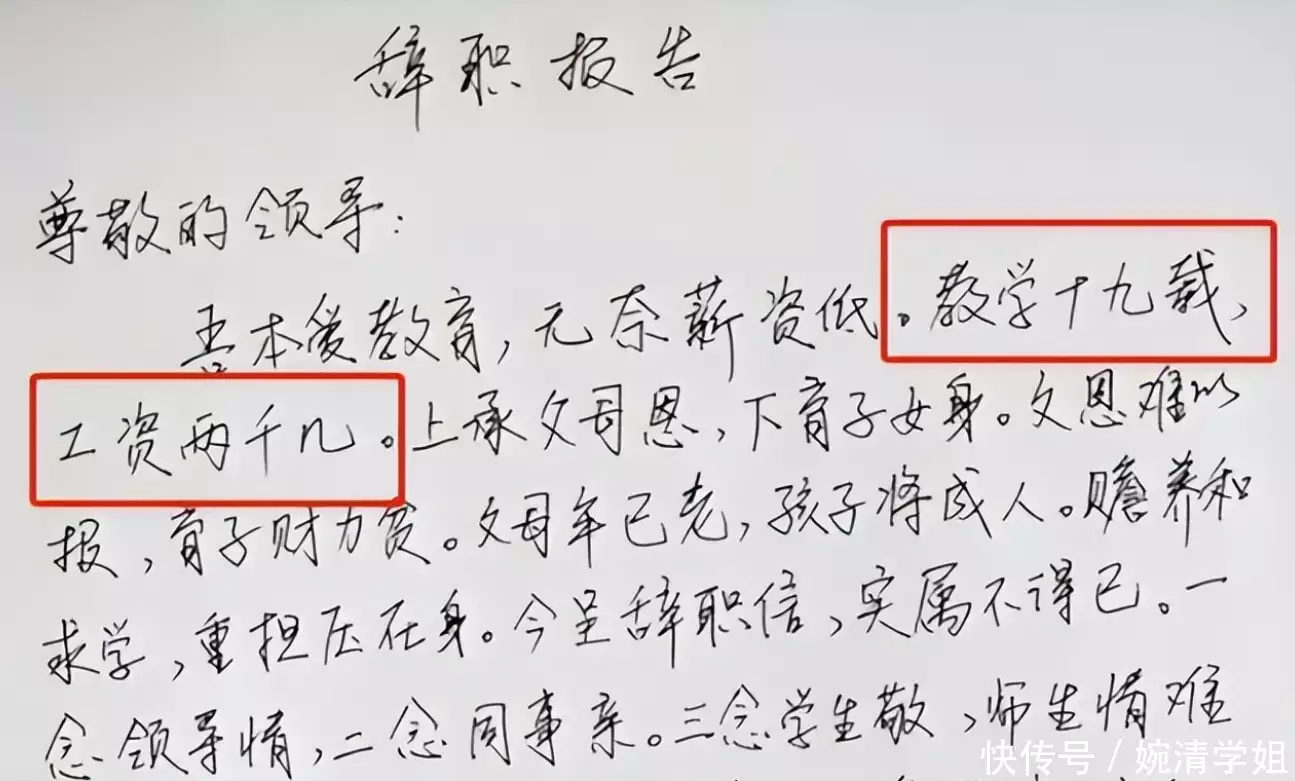 辞职报告
尊敬的领导：
吾本爱教育，无奈薪资低。教学十九载，
工资两千几。上承父母恩，下育子女身。父恩难以
报，育子财力贫。父母年已老，孩子将成人。赡养和
求学，重担压在身。今呈辞职信，实属不得已。一
念领导情，二念同事亲。三念学生敬，师生情难
快传号 / 婉清学姐